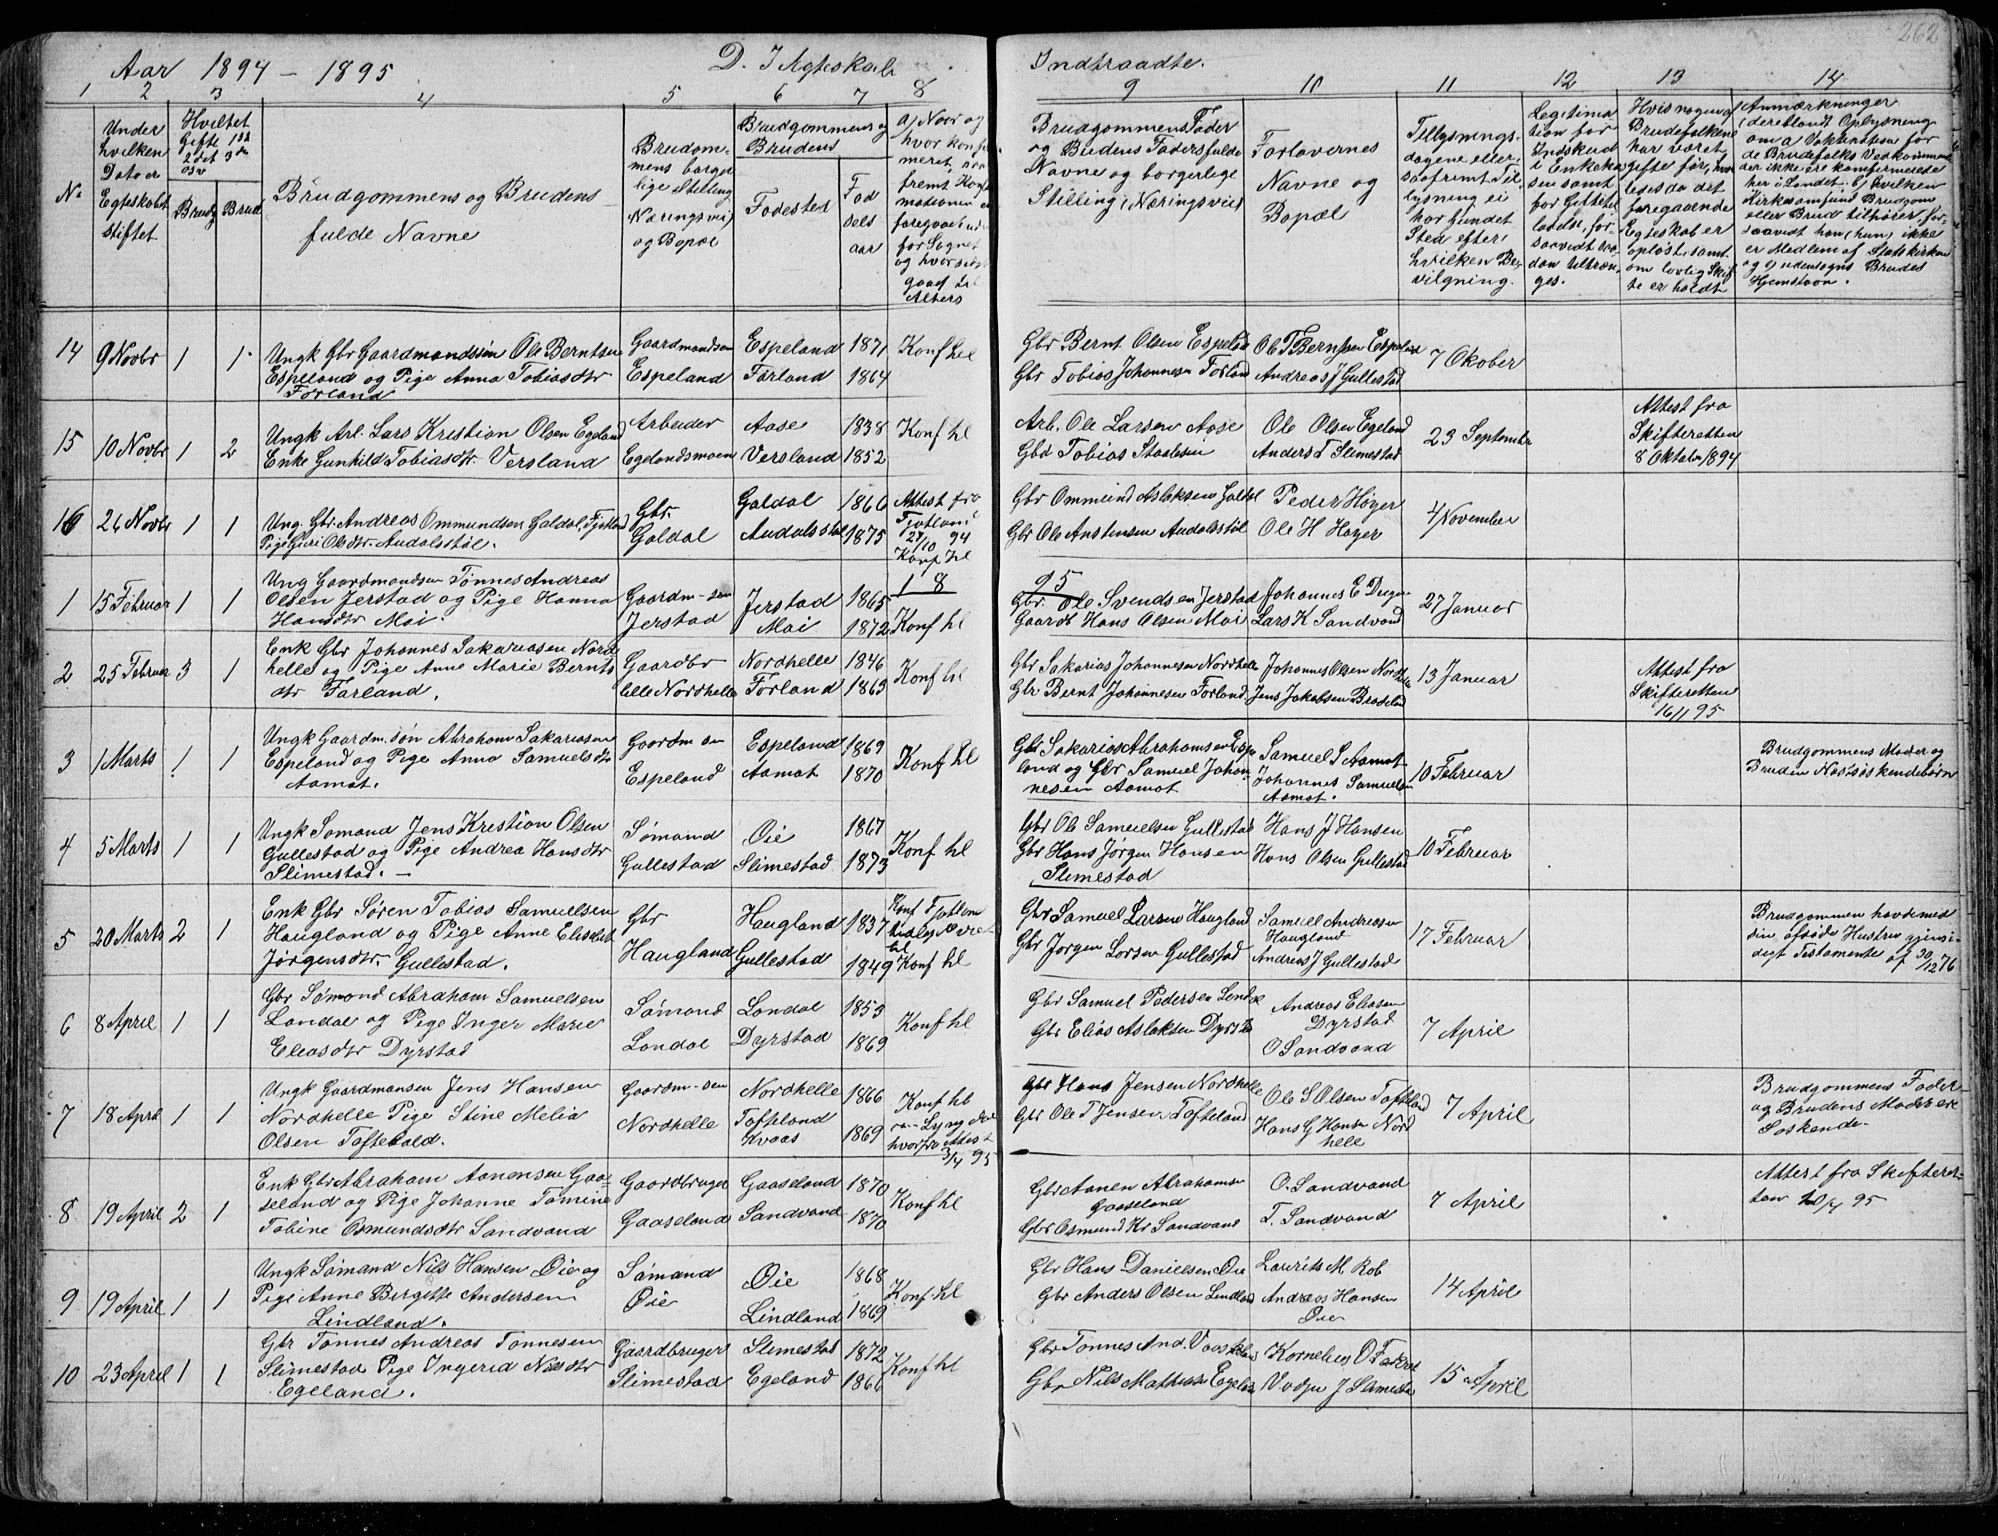 262
Aar 1894 - 1895 D. I Ægteskab Indtraadte.
1 2 3 4 5 6 7 8 9 10 11 12 13 14
No
Under hvilken Dato er Egteskabet stiftet
Hvilket Gifte 1ste 2det 3die osv
Brudg Brud
Brudgommens og Brudens fulde Navne
Brudgommens borgerlige Stilling Næringsvei og Bopæl
Brudgommens og Brudens
Fodested
Fodselsaar
Brudgommens Fader og Brudens Faders fulde Navne og borgerlige Stilling (Næringsvei)
Forlovernes Navne og Bopæl
Tillysningsdagene eller, saafremt Tillysning ei har fundet Sted efter hvilken Bevilgning.
14 9 Novbr 1 1 Ungk Gbr Gaardmandssøn Ole Berntsen
Espeland og Pige Anna Tobiasdtr
Førland
Gaardmandsøn Espeland
Espeland 1871
Førland 1864
Konf hl
Gbr Bernt Olsen Espeland
Gbr Tobias Johannesen Førland
Ole T Berntsen Espeland
Andreas J Gullestad
7 Oktober
15 10 Novbr 1 2 Ungk Arb. Lars Kristian Olsen Egeland
Enke Gunhild Tobiasdtr Versland
Arbeider Egelandsmoen
Aase 1838
Versland 1852
Konf hl
Arb. Ole Larsen Aase
Gbd Tobias Staalesen
Ole Olsen Egeland
Anders T Slimestad
23 September
Attest fra Skifteretten 8 Oktober 1894
16 26 Novbr 1 1 Ung. Gbr. Andreas Ommundsen Galdal, Fjotland
Pige Guri Olsdtr Audalsstøl.
Gbr. Galdal
Galdal 1866
Audalsstøl 1875
Attest fra Fjotland 27/10 94
Konf hl
Gbr Ommund Aslaksen Galdal
Gbr Ole Anstensen Audalsstøl
Peder Høyer
Ole H Høyer
4 November
1 8 95
1 15 Februar 1 1 Ung Gaardmandsøn Tønnes Andreas
Olsen Jerstad og Pige Hanna
Hansdtr Moi.
Gaardm-søn Jerstad
Jerstad 1865
Moi 1872
Konf hl
Gbr. Ole Svendsen Jerstad
Gaardb Hans Olsen Moi
Johannes E
Lars K Sandvand
27 Januar
2 25 Februar 3 1 Enk Gbr Johannes Sakariasen Nordhelle og Pige Anne Marie Berntsdtr Førland.
Gaardbr lille Nordhelle
Nordhelle 1846
Førland 1863
Konf hl
Gbr Sakarias Johannesen Nordhelle
Gbr. Bernt Johannesen Førland
Johannes Olsen Nordhelle
Jens Jakobsen
13 Januar
Attest fra Skifteretten 16/1 95
3 1 Marts 1 1 Ungk Gaardm. søn Abraham Sakariasen
Espeland og Pige Anna Samuelsdtr
Aamot.
Gaardm søn Espeland
Espeland 1869
Aamot 1870
Konf hl
Gbr Sakarias Abrahamsen Espeland og Gbr Samuel Johannesen Aamot
Samuel S Aamot
Johannes Samuelsen Aamot.
10 Februar
Brudgommens Moder og Bruden Næstsøskendebørn
4 5 Marts 1 1 Ungk Sømand Jens Kristian Olsen
Gullestad og Pige Andrea Hansdtr
Slimestad.
Sømand Gullestad
Øie 1867
Slimestad 1873
Konf hl
Gbr Ole Samuelsen Gullestad
Gbr Hans Jørgen Hansen Slimestad
Hans J Hansen
Hans Olsen Gullestad
10 Februar
5 20 Marts 2 1 Enk Gbr Søren Tobias Samuelsen
Haugland og Pige Anne Elisabet
Jørgensdtr Gullestad.
Gbr Haugland
Haugland 1837
Gullestad 1849
Konf hl
Gbr Samuel Larsen Haugland
Gbr Jørgen Larsen Gullestad
Samuel Andreasen Haugland
Andreas J Gullestad
17 Februar
Brudgommen havde med din afdøde Hustru gjensidigt Testamente af 30/12 76
6 8 April 1 1 Gbr Sømand Abraham Samuelsen
Londal og Pige Inger Marie
Eliasdtr Dyrstad
Sømand Londal
Londal 1853
Dyrstad 1869
Konf hl
Gbr Samuel Pedersen Londal
Gbr Elias Aslaksen Dyrstad
Andreas Eliasen Dyrstad
O Sandvand
7 April
7 18 April 1 1 Ungk Gaardmansøn Jens Hansen
Nordhelle Pige Stine Melia
Olsen Tofteland.
Gaardm-søn Nordhelle
Nordhelle 1866
Tofteland Kvaas 1869
Konf hl
Lyngdal hvorfra Attest 3/4 95
Gbr Hans Jensen Nordhelle
Gbr Ole T Jensen Tofteland
Ole S Olsen Tofteland
Hans G Hansen Nordhelle
7 April
Brudgommens Fader og Brudens Moder ere Søskende
8 19 April 2 1 Enk Gbr Abraham Aanensen Gaaseland og Pige Johanne Tomine
Tobine Osmundsdtr Sandvand
Gaardbruger Gaaseland
Gaaseland 1870
Sandvand 1870
Konf hl
Gbr Aanen Abrahamsen Gaaseland
Gbr Osmund Kr Sandvand
O. Sandvand
T. Sandvand
7 April
Attest fra Skifteretten 20/4 95
9 19 April 1 1 Ungk Sømand Nils Hansen Øie og
Pige Anne Birgitte Andersen
Lindland.
Sømand Øie
Øie 1868
Lindland 1869
Konf hl
Gbr Hans Danielsen Øie
Gbr Anders Olsen Lindland
Laurits M Rob
Andreas Hansen Øie
14 April
10 23 April 1 1 Gbr Tønnes Andreas Tønnesen
Slimestad Pige Ingerid Nilsdtr
Egeland.
Gaardbruger Slimestad
Slimestad 1872
Egeland 1866
Konf hl
Gbr Tønnes And.
Gbr Nils Mathisen Egeland
Kornelius O
J Slimestad
15 April